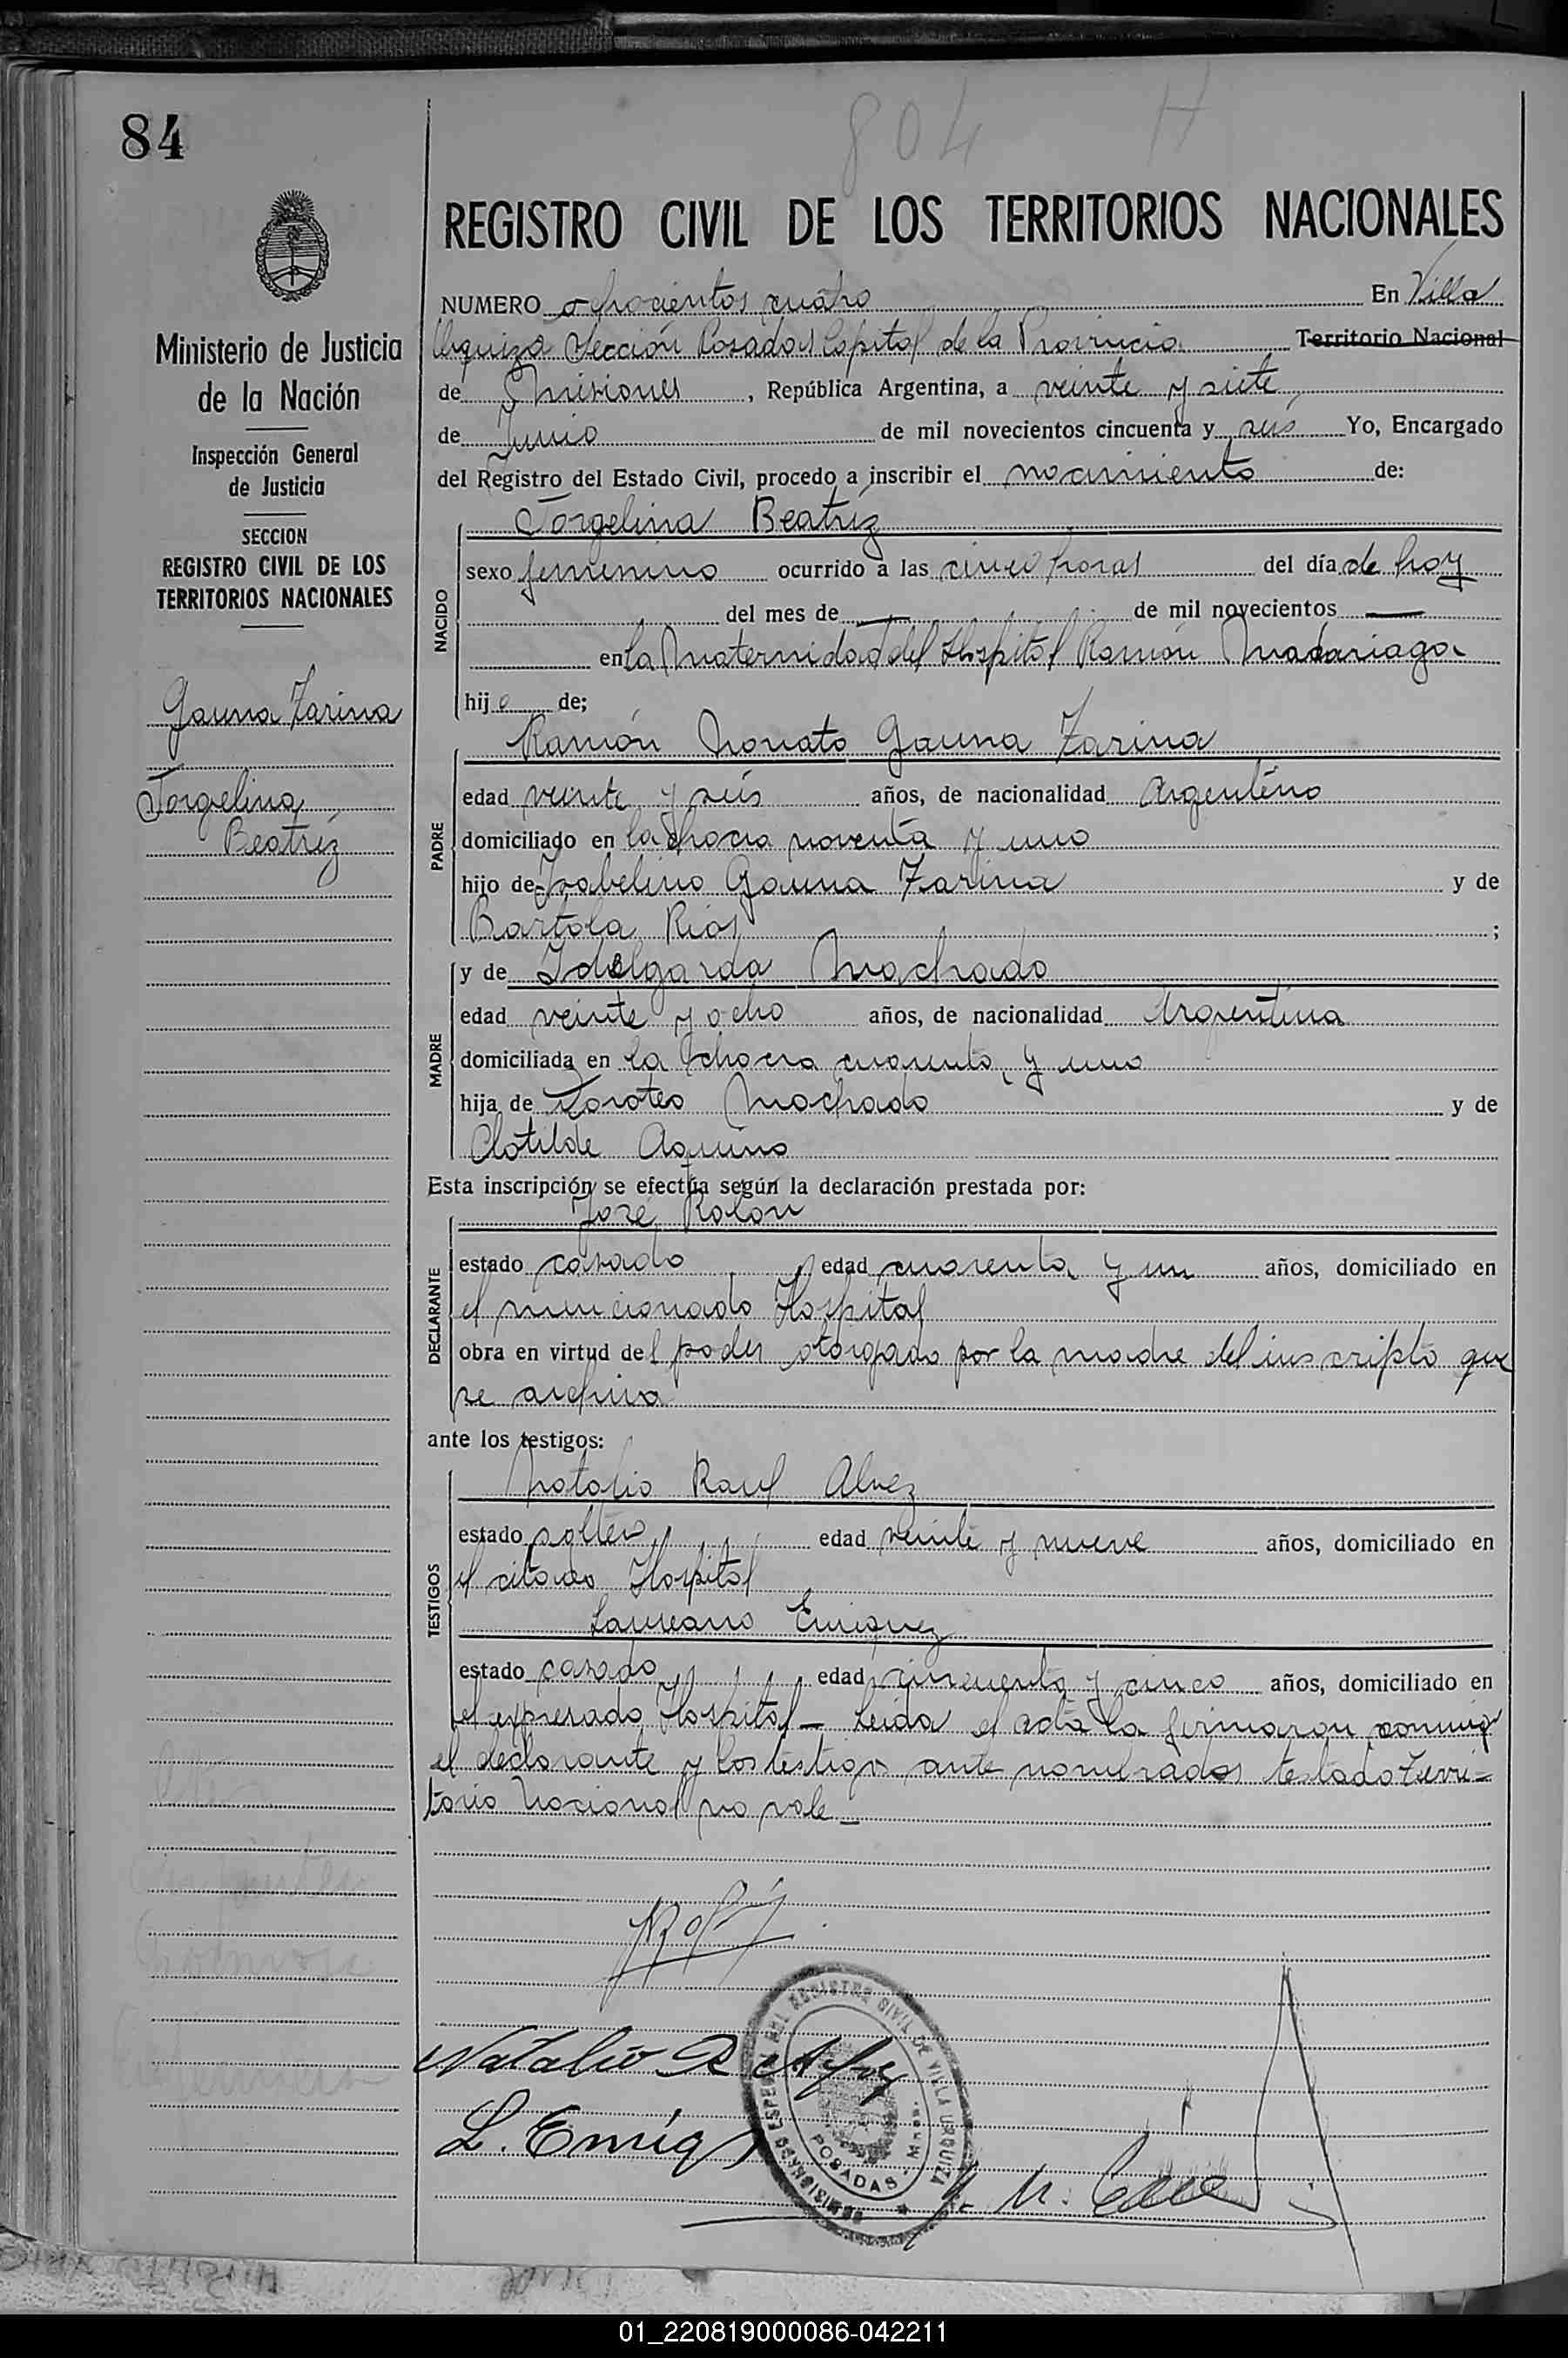 84
804 H
REGISTRO CIVIL DE LOS TERRITORIOS NACIONALES
Ministerio de Justicia
de la Nación
Inspección General
de Justicia
SECCION
REGISTRO CIVIL DE LOS
TERRITORIOS NACIONALES
Gauna Zarina
Jorgelina
Beatriz
NUMERO ochocientos cuatro En Villa
Urquiza Sección Posadas Capital de la Provincia Territorio Nacional
de Misiones, República Argentina, a veinte y siete
de Junio de mil novecientos cincuenta y seis Yo, Encargado
del Registro del Estado Civil, procedo a inscribir el nacimiento de:
NACIDO
Jorgelina Beatriz
sexo femenino ocurrido a las cinco horas del día de hoy
del mes de — de mil novecientos —
en la Maternidad del Hospital Ramón Madariaga
hija de;
PADRE
Ramón Nonato Gauna Zarina
edad veinte y seis años, de nacionalidad Argentino
domiciliado en la chacra noventa y uno
hijo de Isabelino Gauna Zarina y de
Bartola Rios ;
MADRE
y de Idelgarda Machado
edad veinte y ocho años, de nacionalidad Argentina
domiciliada en la chacra cuarenta y uno
hija de Doroteo Machado y de
Clotilde Aquino
Esta inscripción se efectúa según la declaración prestada por:
DECLARANTE
José Rolón
estado casado edad cuarenta y un años, domiciliado en
el mencionado Hospital
obra en virtud del poder otorgado por la madre del inscripto que
se archiva
ante los testigos:
TESTIGOS
Natalio Raul Alvez
estado soltero edad veinte y nueve años, domiciliado en
el citado Hospital
Laureano Enriquez
estado casado edad cincuenta y cinco años, domiciliado en
el expresado Hospital — Leida el acta la firmaron conmigo
el declarante y los testigos ante nombrados testado Terri-
torio Nacional no vale —
Natalio R Alvez
L. Enriq
REGISTRO CIVIL DE VILLA URQUIZA
POSADAS
01_220819000086-042211